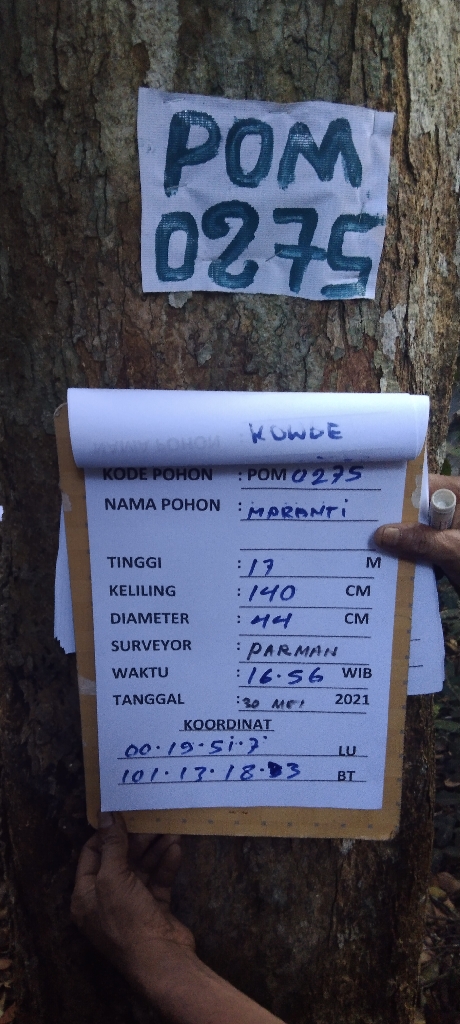 POM
0275
KOWDE
NAMA POHON
KODE POHON : POM 0275
NAMA POHON : MARANTI
TINGGI : 17 M
KELILING : 140 CM
DIAMETER : 44 CM
SURVEYOR : PARMAN
WAKTU : 16.56 WIB
TANGGAL : 30 MEI 2021
KOORDINAT
00.19.51.7 LU
101.13.18.33 BT